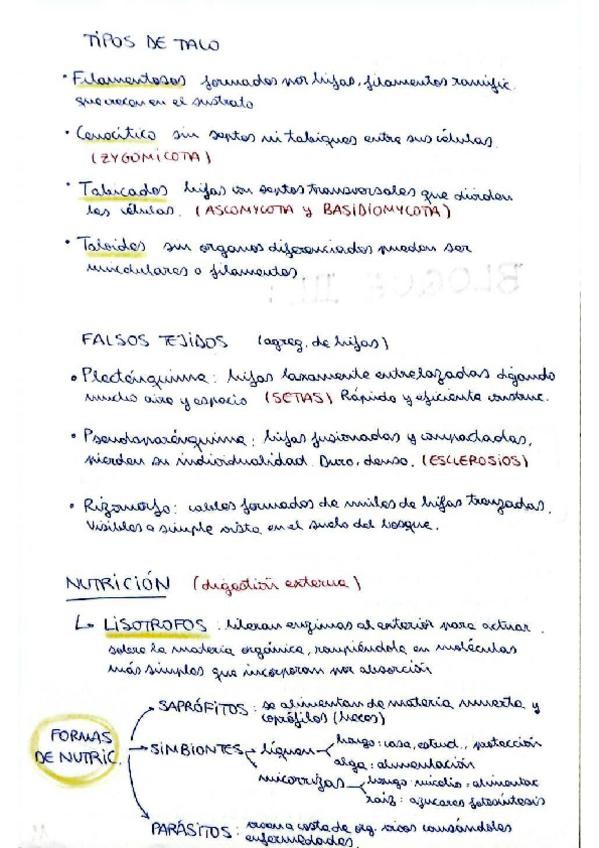 TIPOS DE TALO
• Filamentosos formados por hifas, filamentos ramific.
que crecen en el sustrato
• Cenocítico sin septos ni tabiques entre sus células.
(ZYGOMICOTA)
• Tabicados hifas con septos transversales que dividen
las células. (ASCOMYCOTA y BASIDIOMYCOTA)
• Taloides sin organos diferenciados pueden ser
unicelulares o filamentos
BLOQUE III:
FALSOS TEJIDOS (agreg. de hifas)
• Plecténquima: hifas laxamente entrelazadas dejando
mucho aire y espacio (SETAS) Rápido y eficiente construc.
• Pseudoparénquima: hifas fusionadas y compactadas,
pierden su individualidad. Duro, denso. (ESCLEROSIOS)
• Rizomorfo: cables formados de miles de hifas trenzadas.
Visibles a simple vista en el suelo del bosque.
NUTRICIÓN (digestión externa)
↳ LISOTROFOS: liberan enzimas al exterior para actuar
sobre la materia orgánica, rompiéndola en moléculas
más simples que incorporan por absorción
FORMAS
DE NUTRIC.
SAPRÓFITOS: se alimentan de materia muerta y
coprófilos (heces)
SIMBIONTES → líquen
hongo: casa, estruct., protección
alga: alimentación
micorrizas
hongo: micelio, alimentac
raíz: azucares fotosíntesis
PARÁSITOS: viven a costa de org. vivos causándoles
enfermedades.